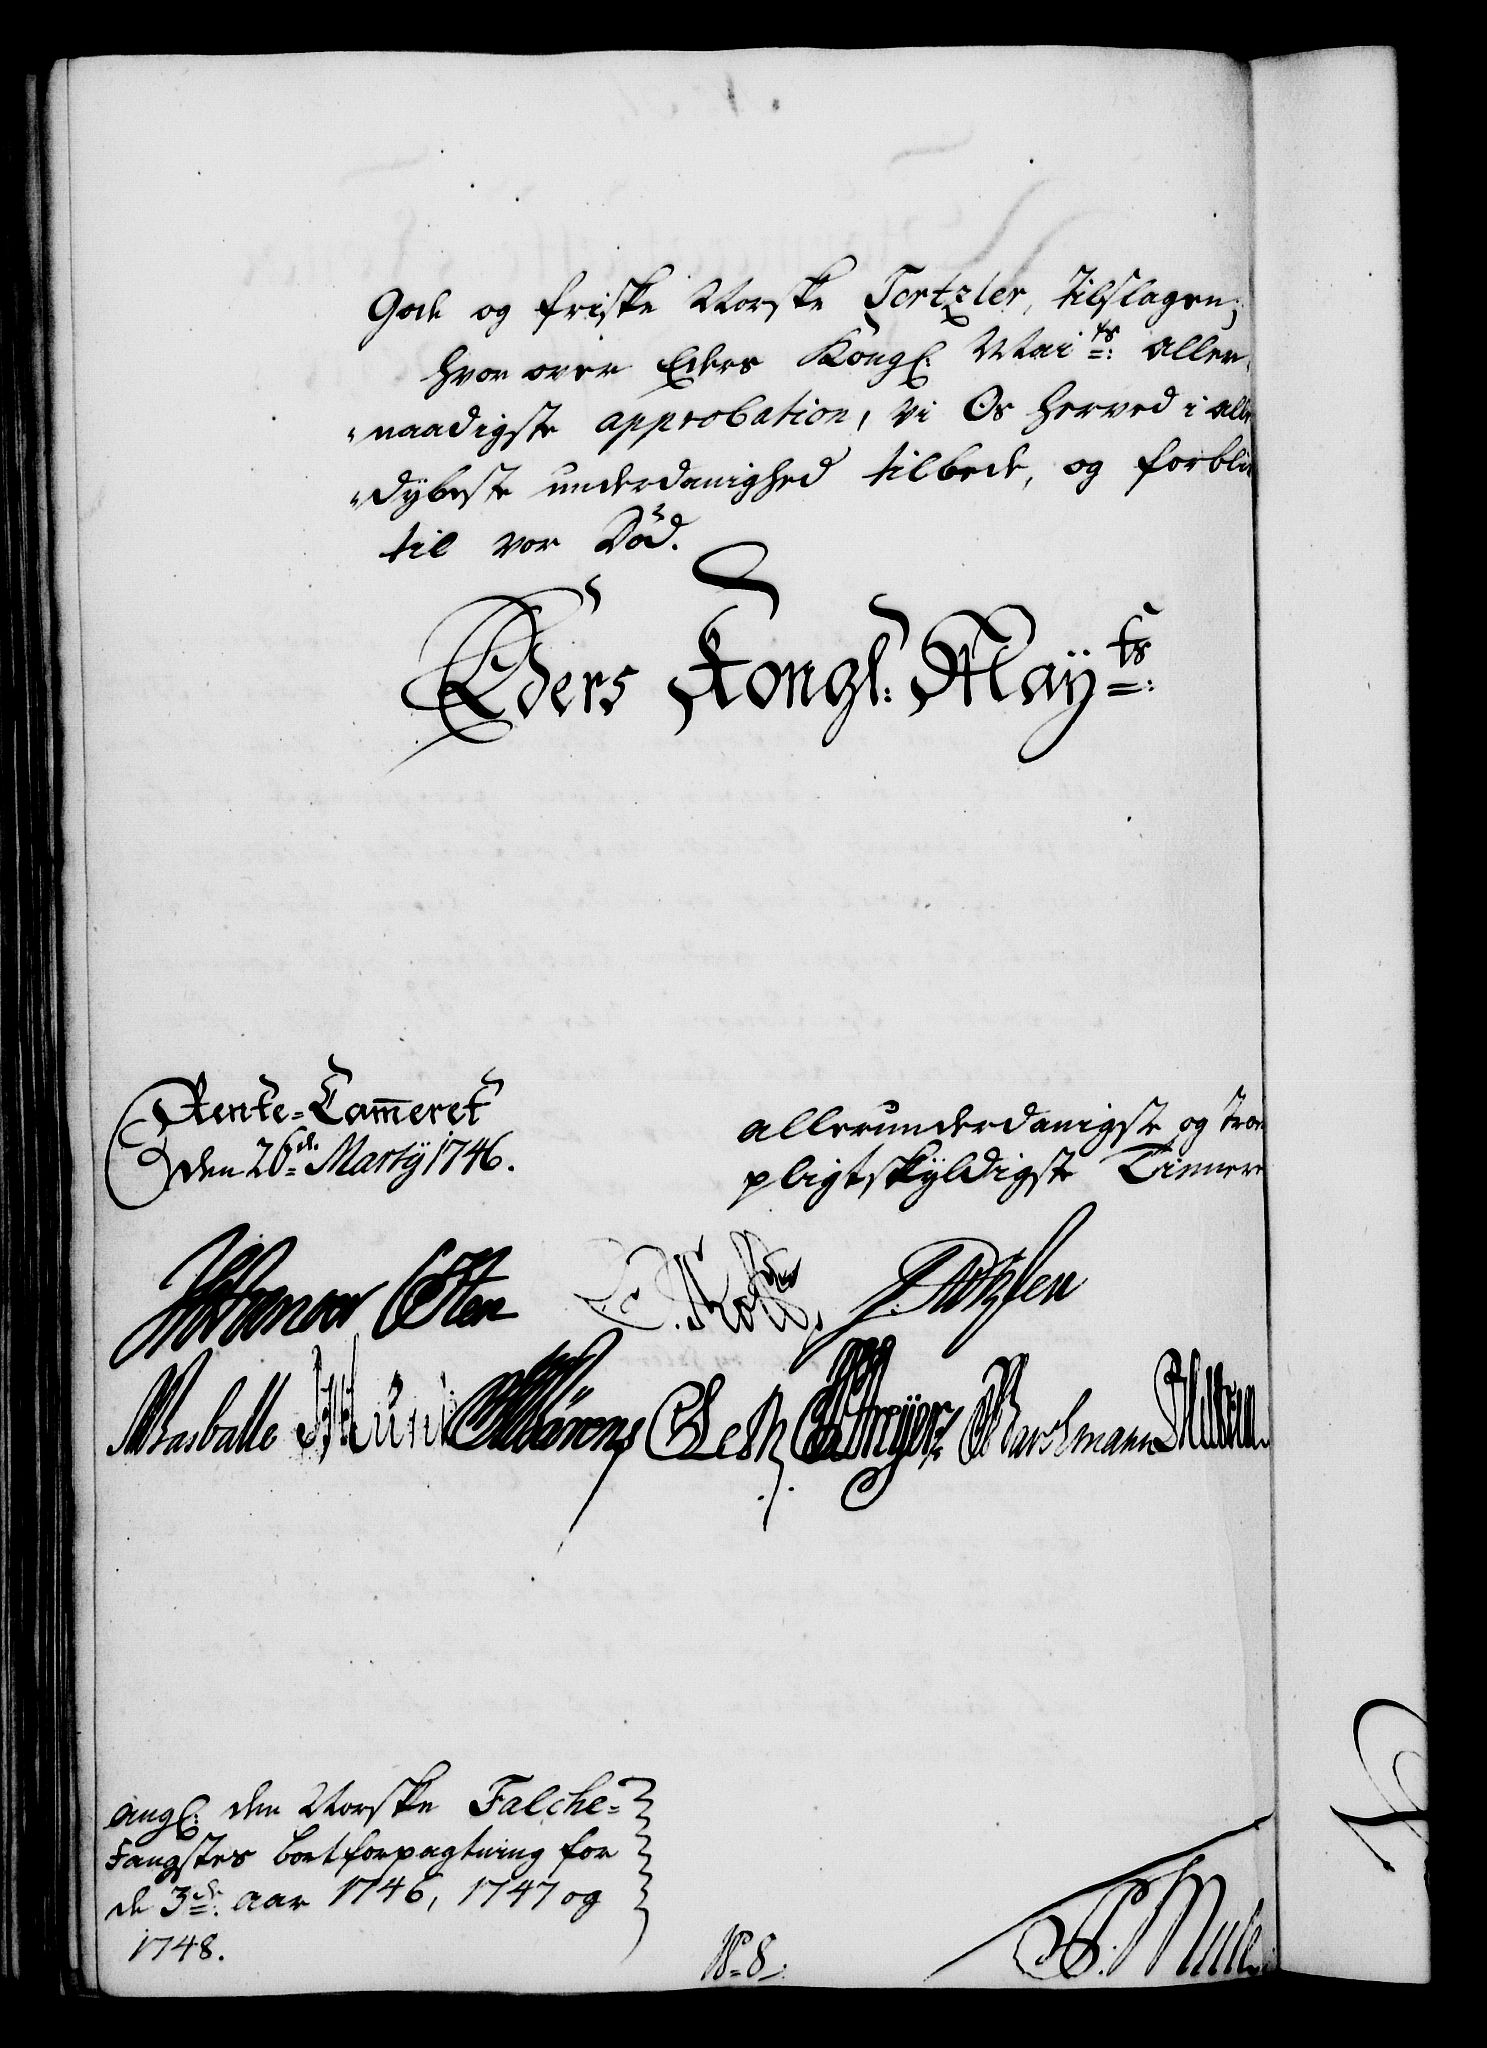 Gode og friske Norske Tertzler, tilslagen;
hvor over Eders Kongl: Mai ts: aller-
naadigste approbation, vi Os herved i aller
dybeste underdanighed tilbede, og forbli
til vor Död.
Eders Kongl: May ts:
Rente-Cammeret
den 26de: Marty 1746.
allerunderdanigste og troe
pligtskyldigste Tiennere
Osten
Basballe
angl: den Norske Falche-
Fangstes bortforpagtning for
de 3de: aar 1746, 1747 og
1748.
No 8.